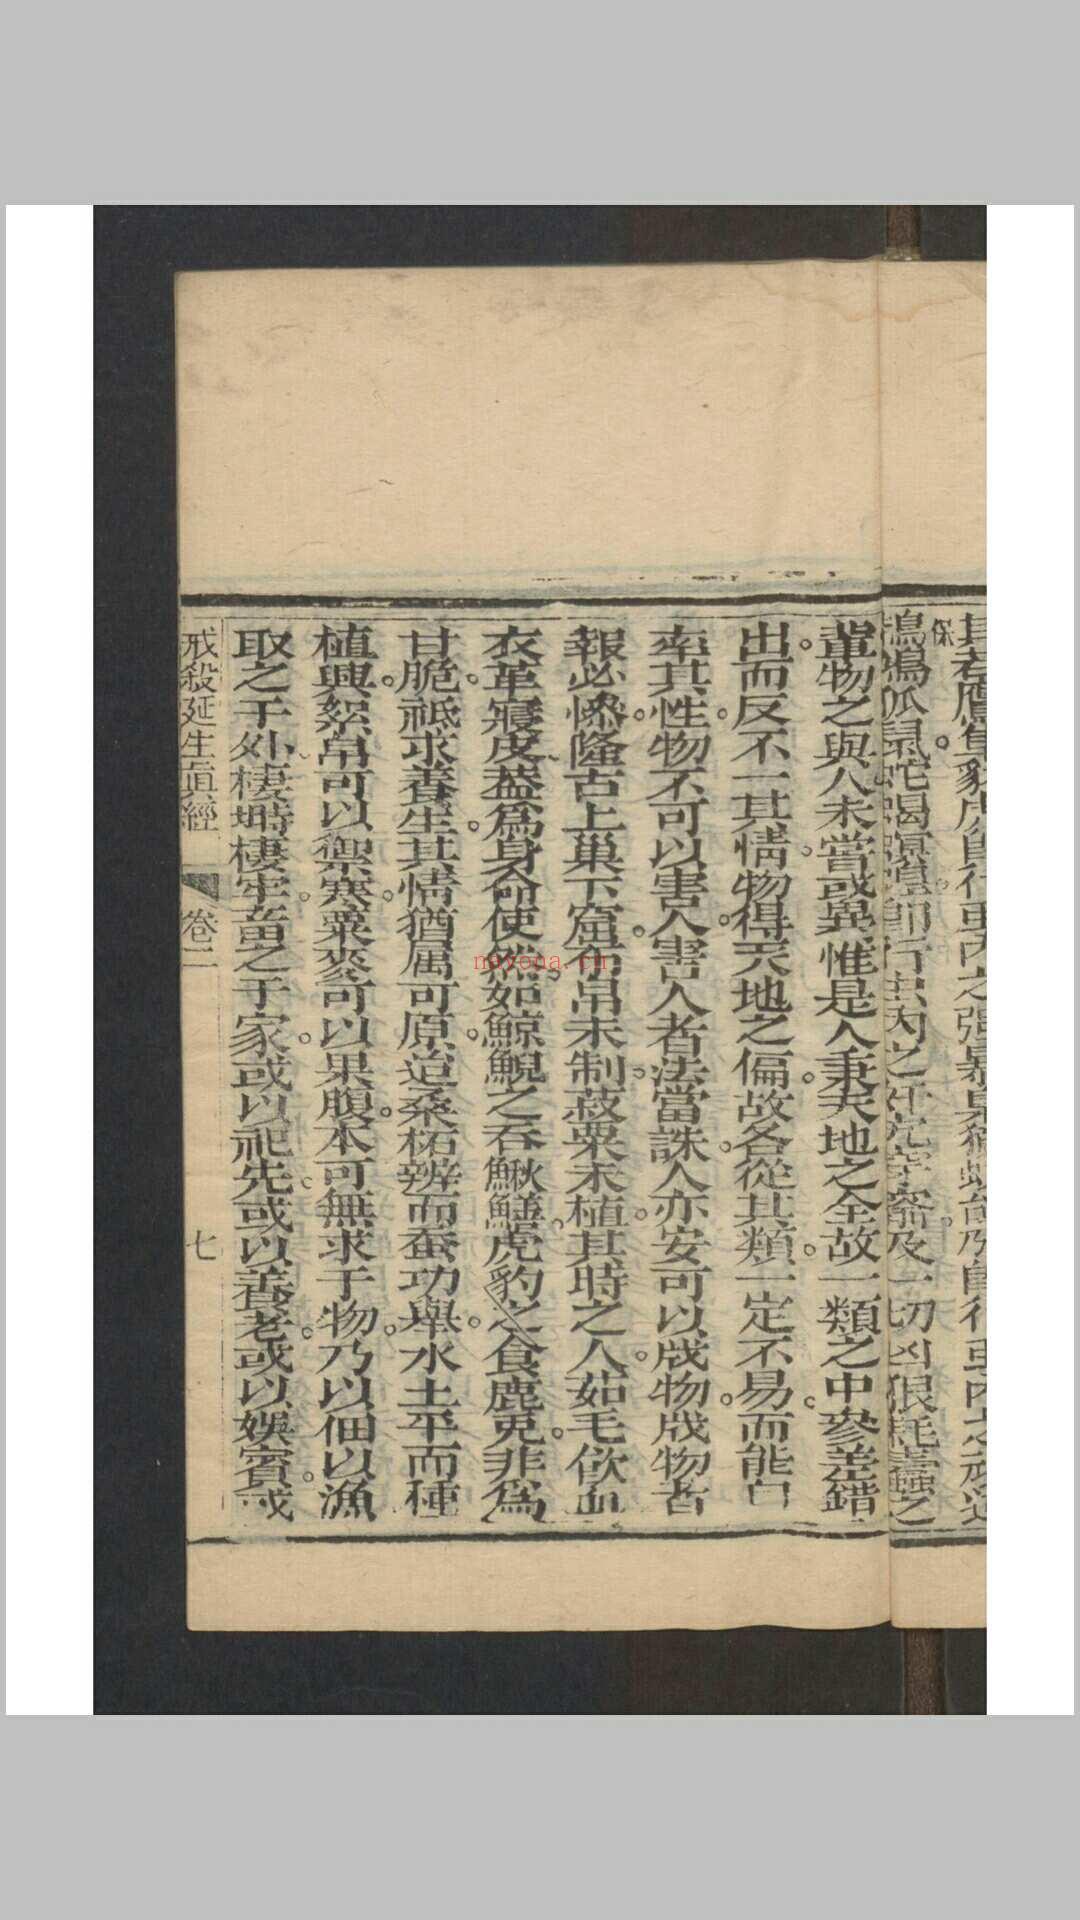 其若鷹隼豺虎自行
保
鴟鴞狐鼠蛇蝎
及一切凶狠耗蠹之
輩物之與人未嘗或異惟是人秉天地之全故一類之中參差錯
出而反不一其情物得天地之偏故各從其類一定不易而能自
率其性物不可以害人害人者法當誅人亦安可以戕物戕物者
報必慘隆古上巢下窟布帛未制菽粟未植其時之人茹毛飲血
衣革寢皮蓋為身命使然如鯨鯢之吞鰍鱔虎豹之食鹿兕非為
甘脆祗求養生其情猶属可原迨桑柘辨而蚕功舉水土平而種
植興絮帛可以禦寒粟麥可以果腹本可無求于物乃以佃以漁
取之于外棲塒棲牢畜之于家或以祀先或以養老或以娛賓或
戒殺延生真經
卷二
七
nayona.cn